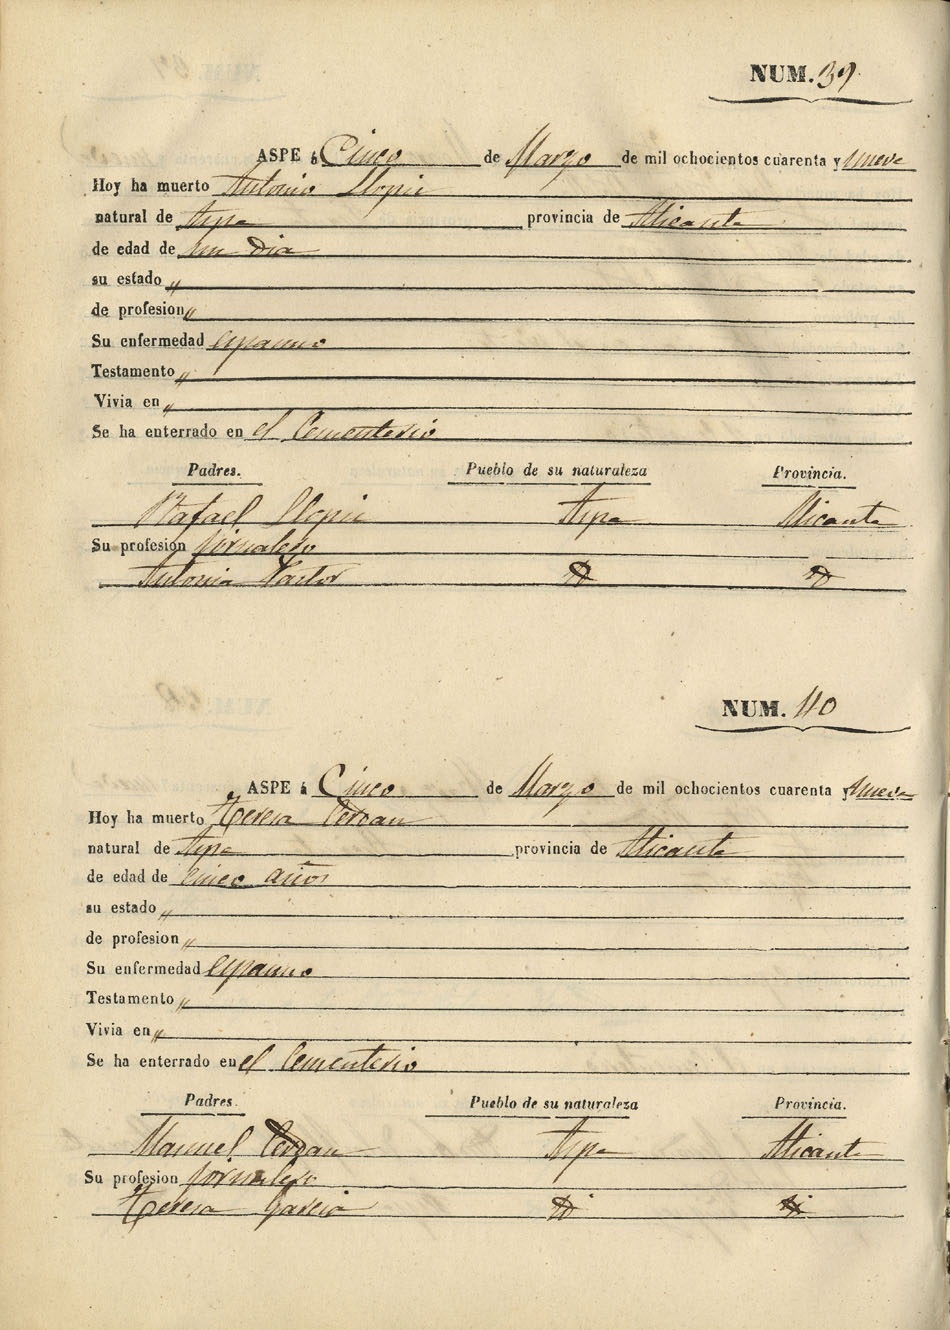 NUM. 39
ASPE á Cinco de Marzo de mil ochocientos cuarenta y nueve
Hoy ha muerto Antonio Llopis
natural de Aspe provincia de Alicante
de edad de un Dia
su estado "
de profesion "
Su enfermedad espasmo
Testamento "
Vivia en "
Se ha enterrado en el Cementerio
Padres. Pueblo de su naturaleza Provincia.
Rafael Llopis Aspe Alicante
Su profesion jornalero
Antonia Pastor
NUM. 40
ASPE á Cinco de Marzo de mil ochocientos cuarenta y nueve
Hoy ha muerto Teresa Cerdan
natural de Aspe provincia de Alicante
de edad de cinco años
su estado "
de profesion "
Su enfermedad espasmo
Testamento "
Vivia en "
Se ha enterrado en el Cementerio
Padres. Pueblo de su naturaleza Provincia.
Manuel Cerdan Aspe Alicante
Su profesion jornalero
Teresa Garcia